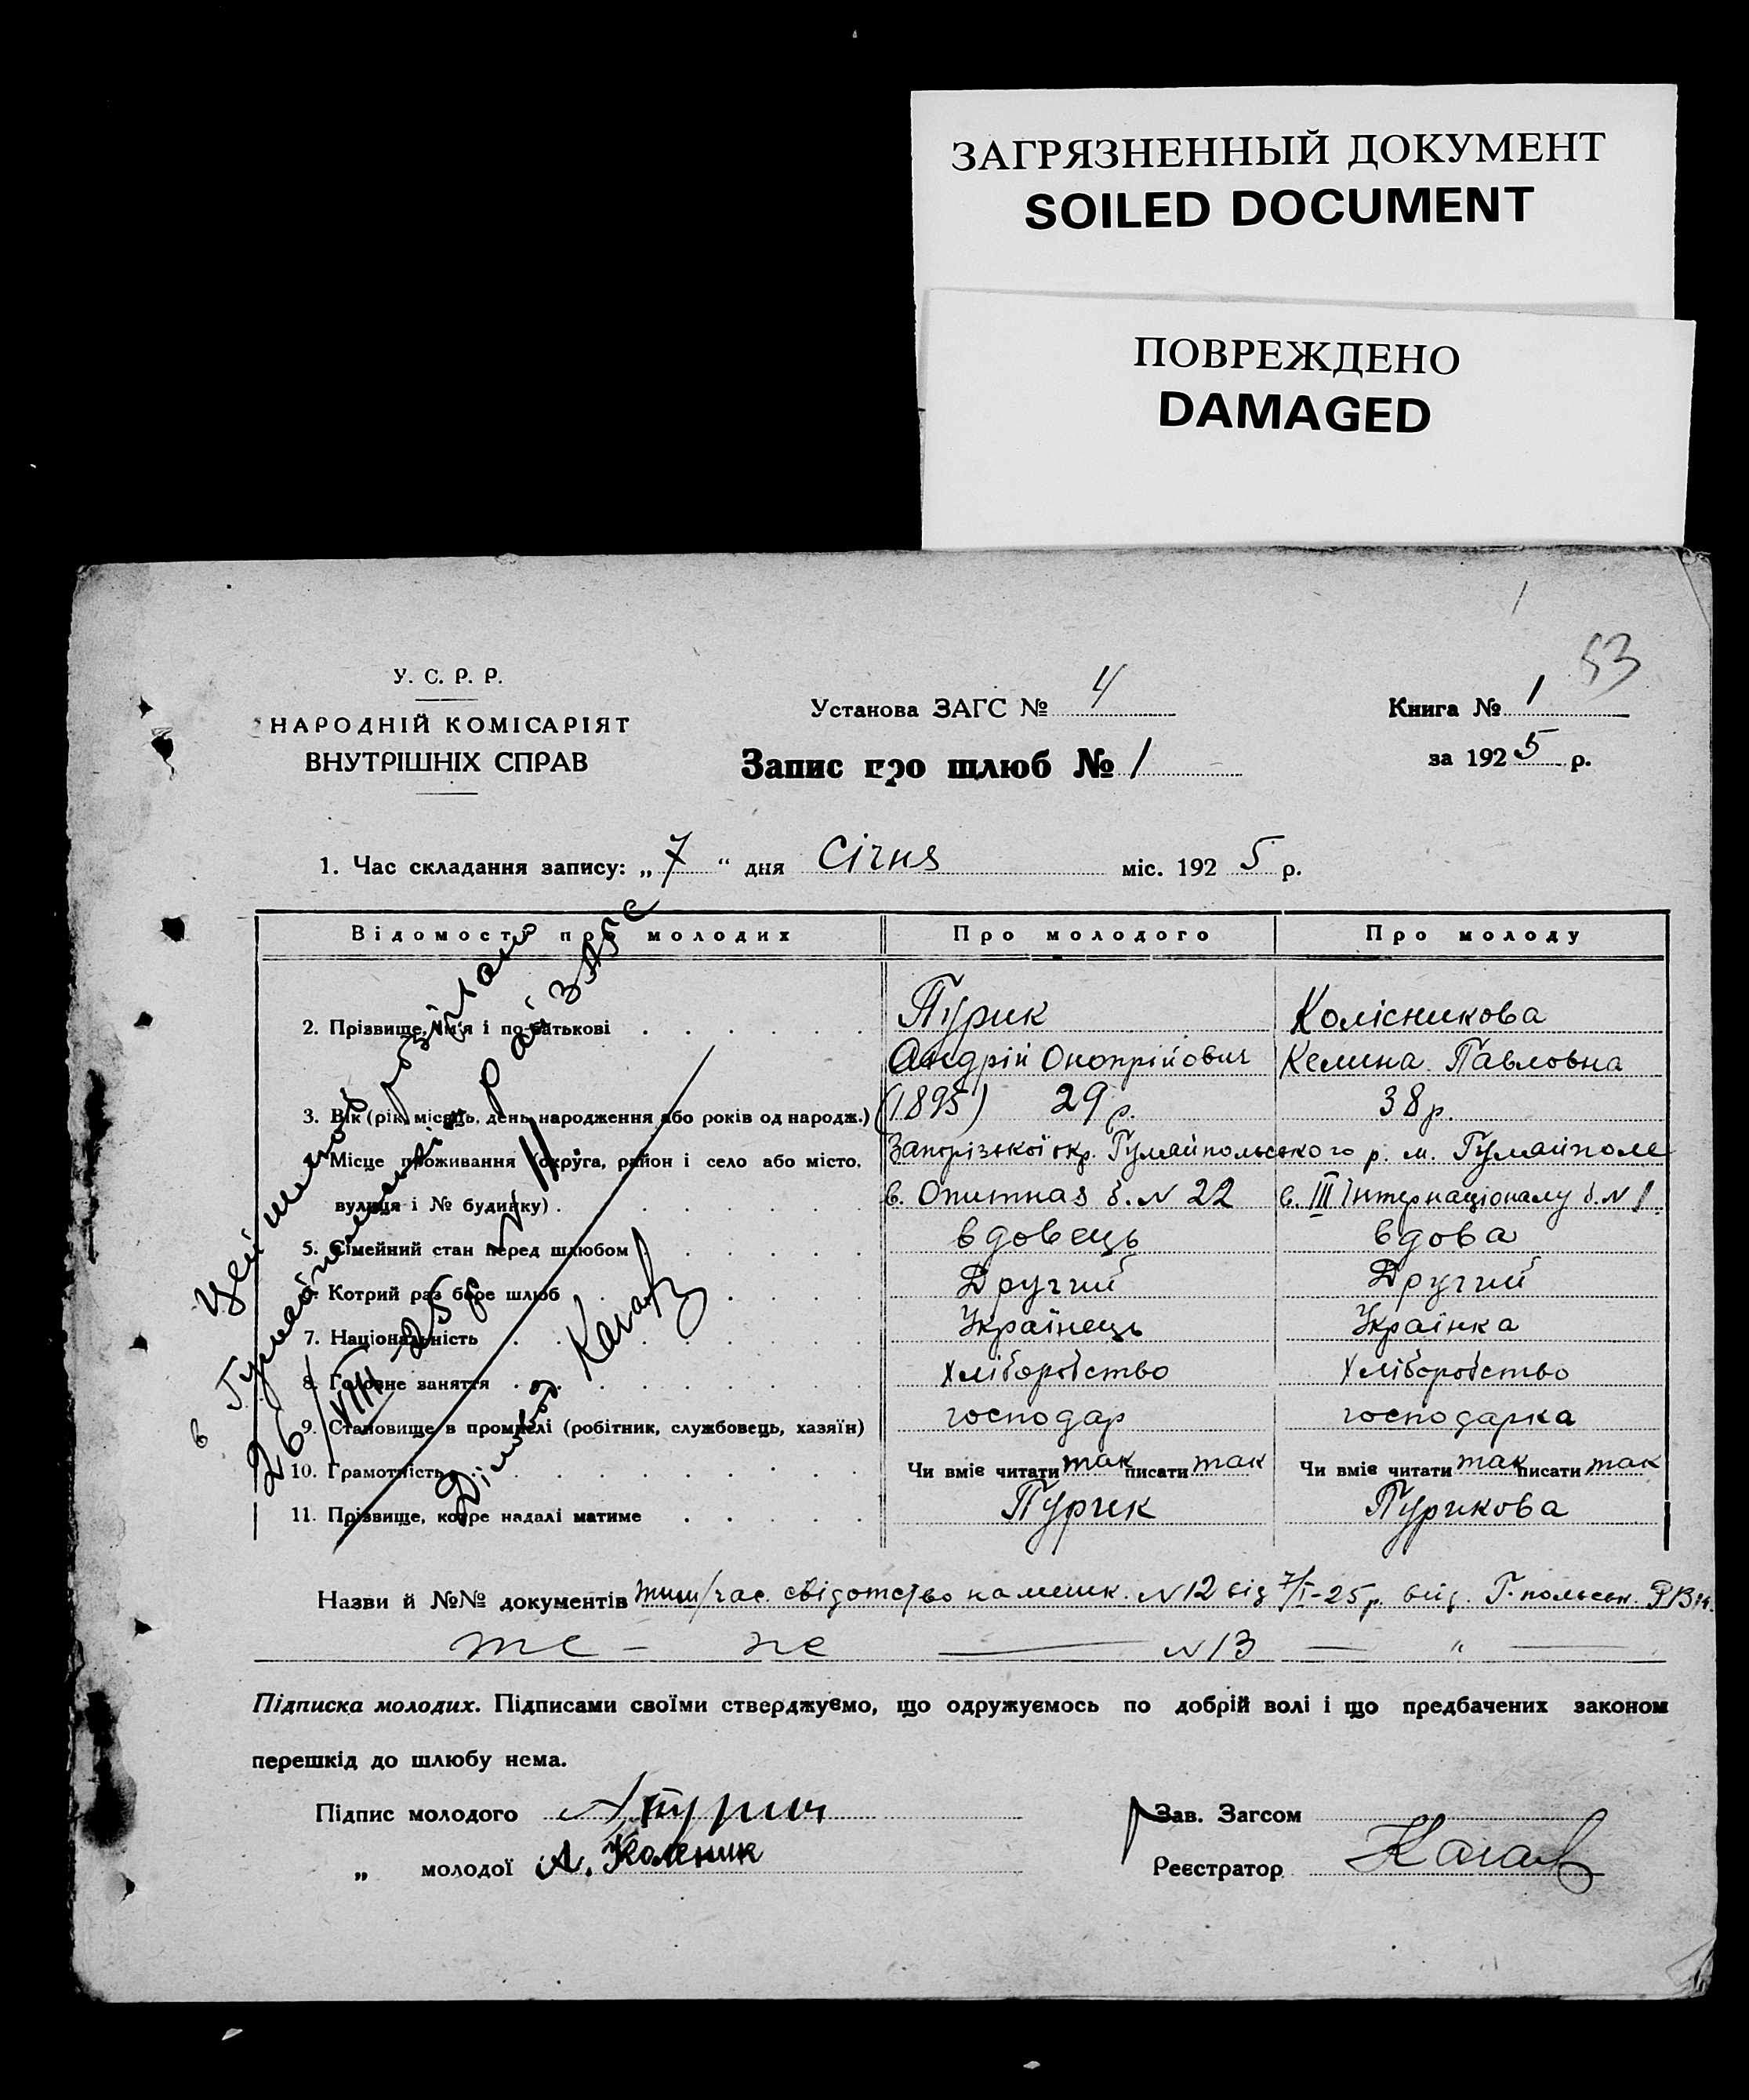 ЗАГРЯЗНЕННЫЙ ДОКУМЕНТ
SOILED DOCUMENT
ПОВРЕЖДЕНО
DAMAGED
1
53
У. С. Р. Р.
НАРОДНІЙ КОМІСАРІЯТ
ВНУТРІШНІХ СПРАВ
Установа ЗАГС № 4
Книга № 1
Запис про щлюб № 1
за 1925 р.
1. Час складання запису: „7“ дня Січня міс. 1925 р.
Відомості про молодих Про молодого Про молоду
2. Прізвище, ім'я і по-батькові Пурик Колісникова
Андрій Оноприйович Келина Павловна
3. Вік (рік, місяць, день народження або років од народж.) (1895) 29 р. 38 р.
4. Місце проживання (округа, район і село або місто, Запорізької окр. Гуляйпольського р. м. Гуляйполе
вулиця і № будинку) в. Опитная б. № 22 в. III Інтернаціоналу б. № 1
5. Сімейний стан перед шлюбом вдовець вдова
6. Котрий раз бере шлюб Другий Другий
7. Національність Українець Українка
8. Головне заняття Хліборобство Хліборобство
9. Становище в промислі (робітник, службовець, хазяїн) господар господарка
10. Грамотність Чи вміє читати так писати так Чи вміє читати так писати так
11. Прізвище, котре надалі матиме Пурик Пурикова
Цей шлюб розірвано
в Гуляйпільськім Рай ЗАГС
26/VIII 25 р. № 11
Діловод
Назви й №№ документів тим/час. свідотство на мешк. № 12 від 7/I-25 р. вид. Г.польськ. РВК.
те - же № 13 — " —
Підписка молодих. Підписами своїми стверджуємо, що одружуємось по добрій волі і що предбачених законом
перешкід до шлюбу нема.
Підпис молодого А. Пурик
Зав. Загсом
„ молодої
Реєстратор